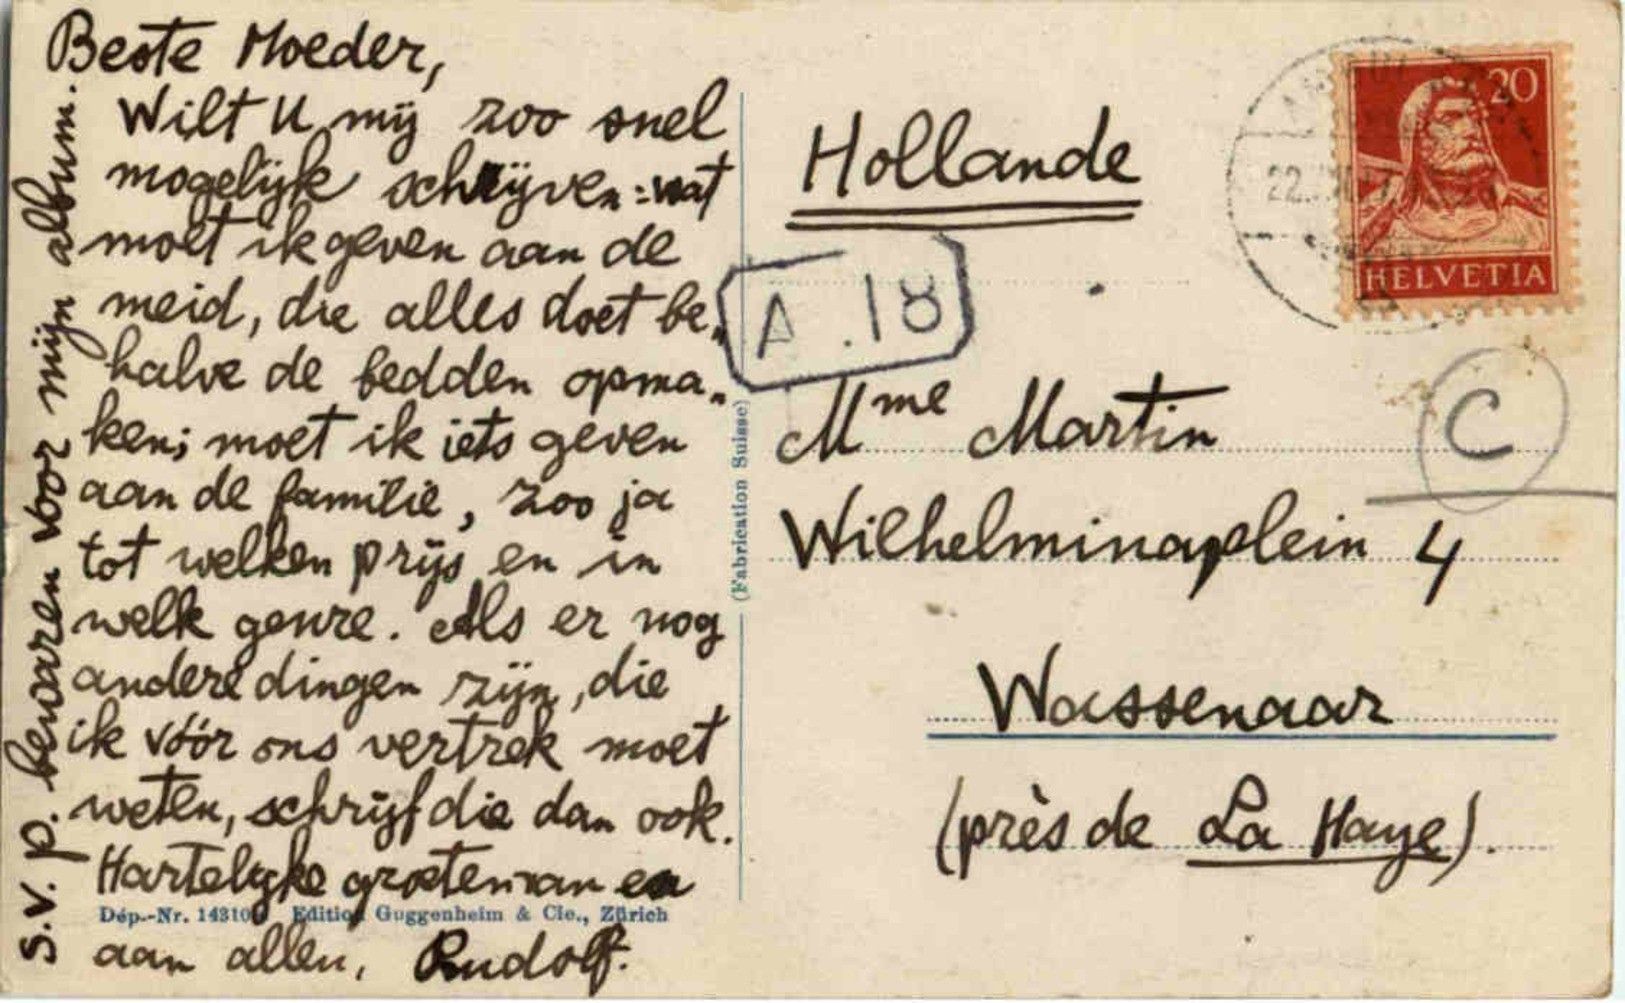 Beste Moeder,
Wilt U mij zoo snel
mogelijk schrijven: wat
moet ik geven aan de
meid, die alles doet be„
halve de bedden opma„
ken; moet ik iets geven
aan de familie, zoo ja
tot welken prijs en in
welk genre. Als er nog
andere dingen zijn, die
ik vóór ons vertrek moet
weten, schrijf die dan ook.
Hartelijke groeten van en
aan allen, Rudolf.
s.v.p. bewaren voor mijn album.
Dép.-Nr. 14310 Edition Guggenheim & Cie., Zürich
(Fabrication Suisse)
20
HELVETIA
22.
Hollande
A.18
C
Mme Martin
Wilhelminaplein 4
Wassenaar
(près de La Haye).